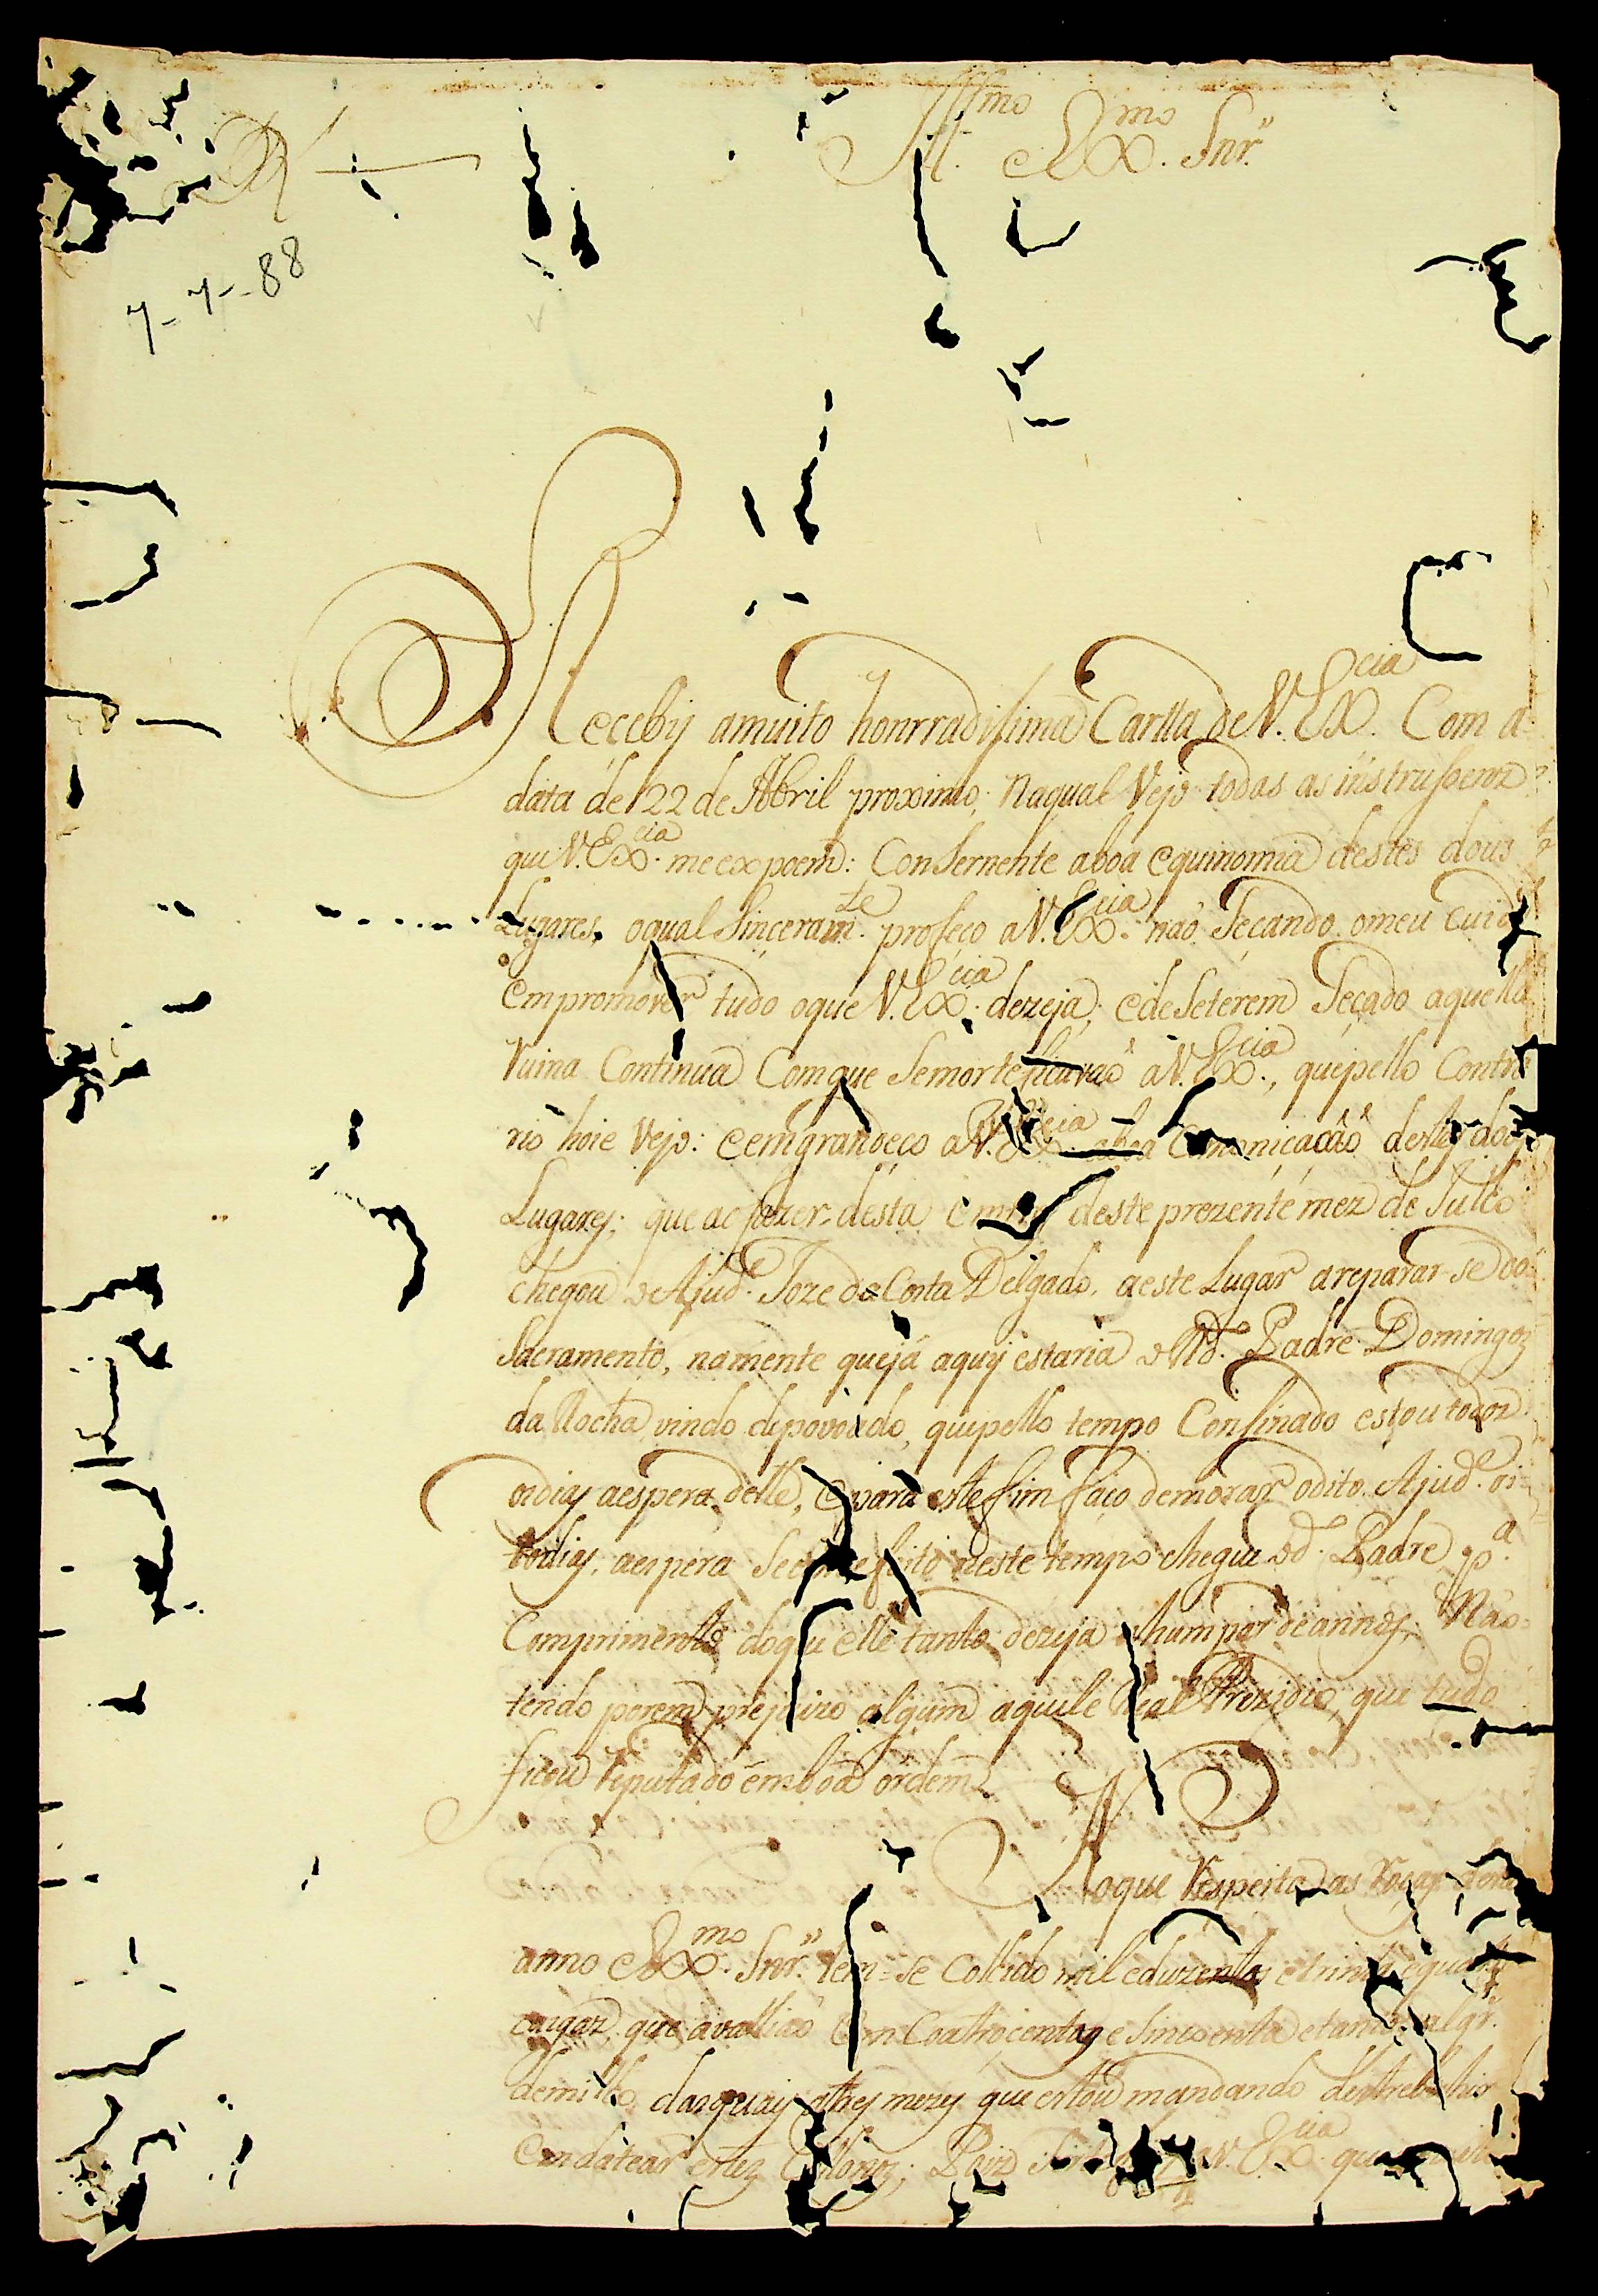 Ill.mo e Ex.mo Snr.
7-7-88
Receby amuito honrradisima Cartta de V. Ex.cia Com a
data de 22 de Abril proximo; Naqual Vejo todas as instrusoens
que V. Ex.cia me expoem: Consernente aboa equinomia destes dous
Lugares, oqual Sinçeram.te profeço a V. Ex.cia não Seçando omeu Cuid
em promover tudo oque V. Ex.cia dezeja; e de Seterem Seçado aquella
Ruina Continua Comque Semorteficavaõ a V. Ex.cia, quepello Contra
rio hoie Vejo: eemgrandeço a V. Ex.cia aboa Comoniçacaõ destes dous
Lugares; que ao fazer desta em deste prezente mez de Julio
chegou o Ajud.e Joze da Costa Delgado, aeste Lugar areparar-se do
Sacramento, namente quejá aquy estaria o R.do Padre Domingos
da Rocha vindo depovoado, quepello tempo Consinado estou todos
osdias aespera delle, e para este fim faço demorar odito Ajud.e oi
todias, aespera Se com efeito neste tempo chegue o d.o Padre p.a
Comprimento doque elle tanto dezeja a hum par de annos; Não
tendo porem prejuizo algum aquele Real Prezidio, que tudo
ficou Reputado em boa ordem
Aoque Respeita as Roças deste
anno Ex.mo Snr. tem-se Colhido mil eduzentos etrinta equatro
cargas que avalliaõ em Coatroçentos e Sincoenta etantos alqr.
demilho, dasquais atres mezes que estou mandando destrebuhir
Condatear estes Collonos; Pois V. Ex.cia que